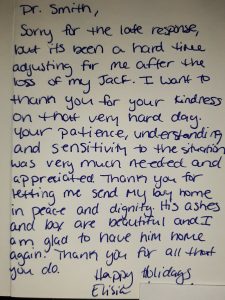 Dr. Smith,
Sorry for the late response,
but its been a hard time
adjusting for me after the
loss of my Jack. I want to
thank you for your kindness
on that very hard day.
Your patience, understanding
and sensitivity to the situation
was very much needed and
appreciated. Thank you for
letting me send my boy home
in peace and dignity. His ashes
and box are beautiful and I
am glad to have him home
again. Thank you for all that
you do.
Happy Holidays
Elisia